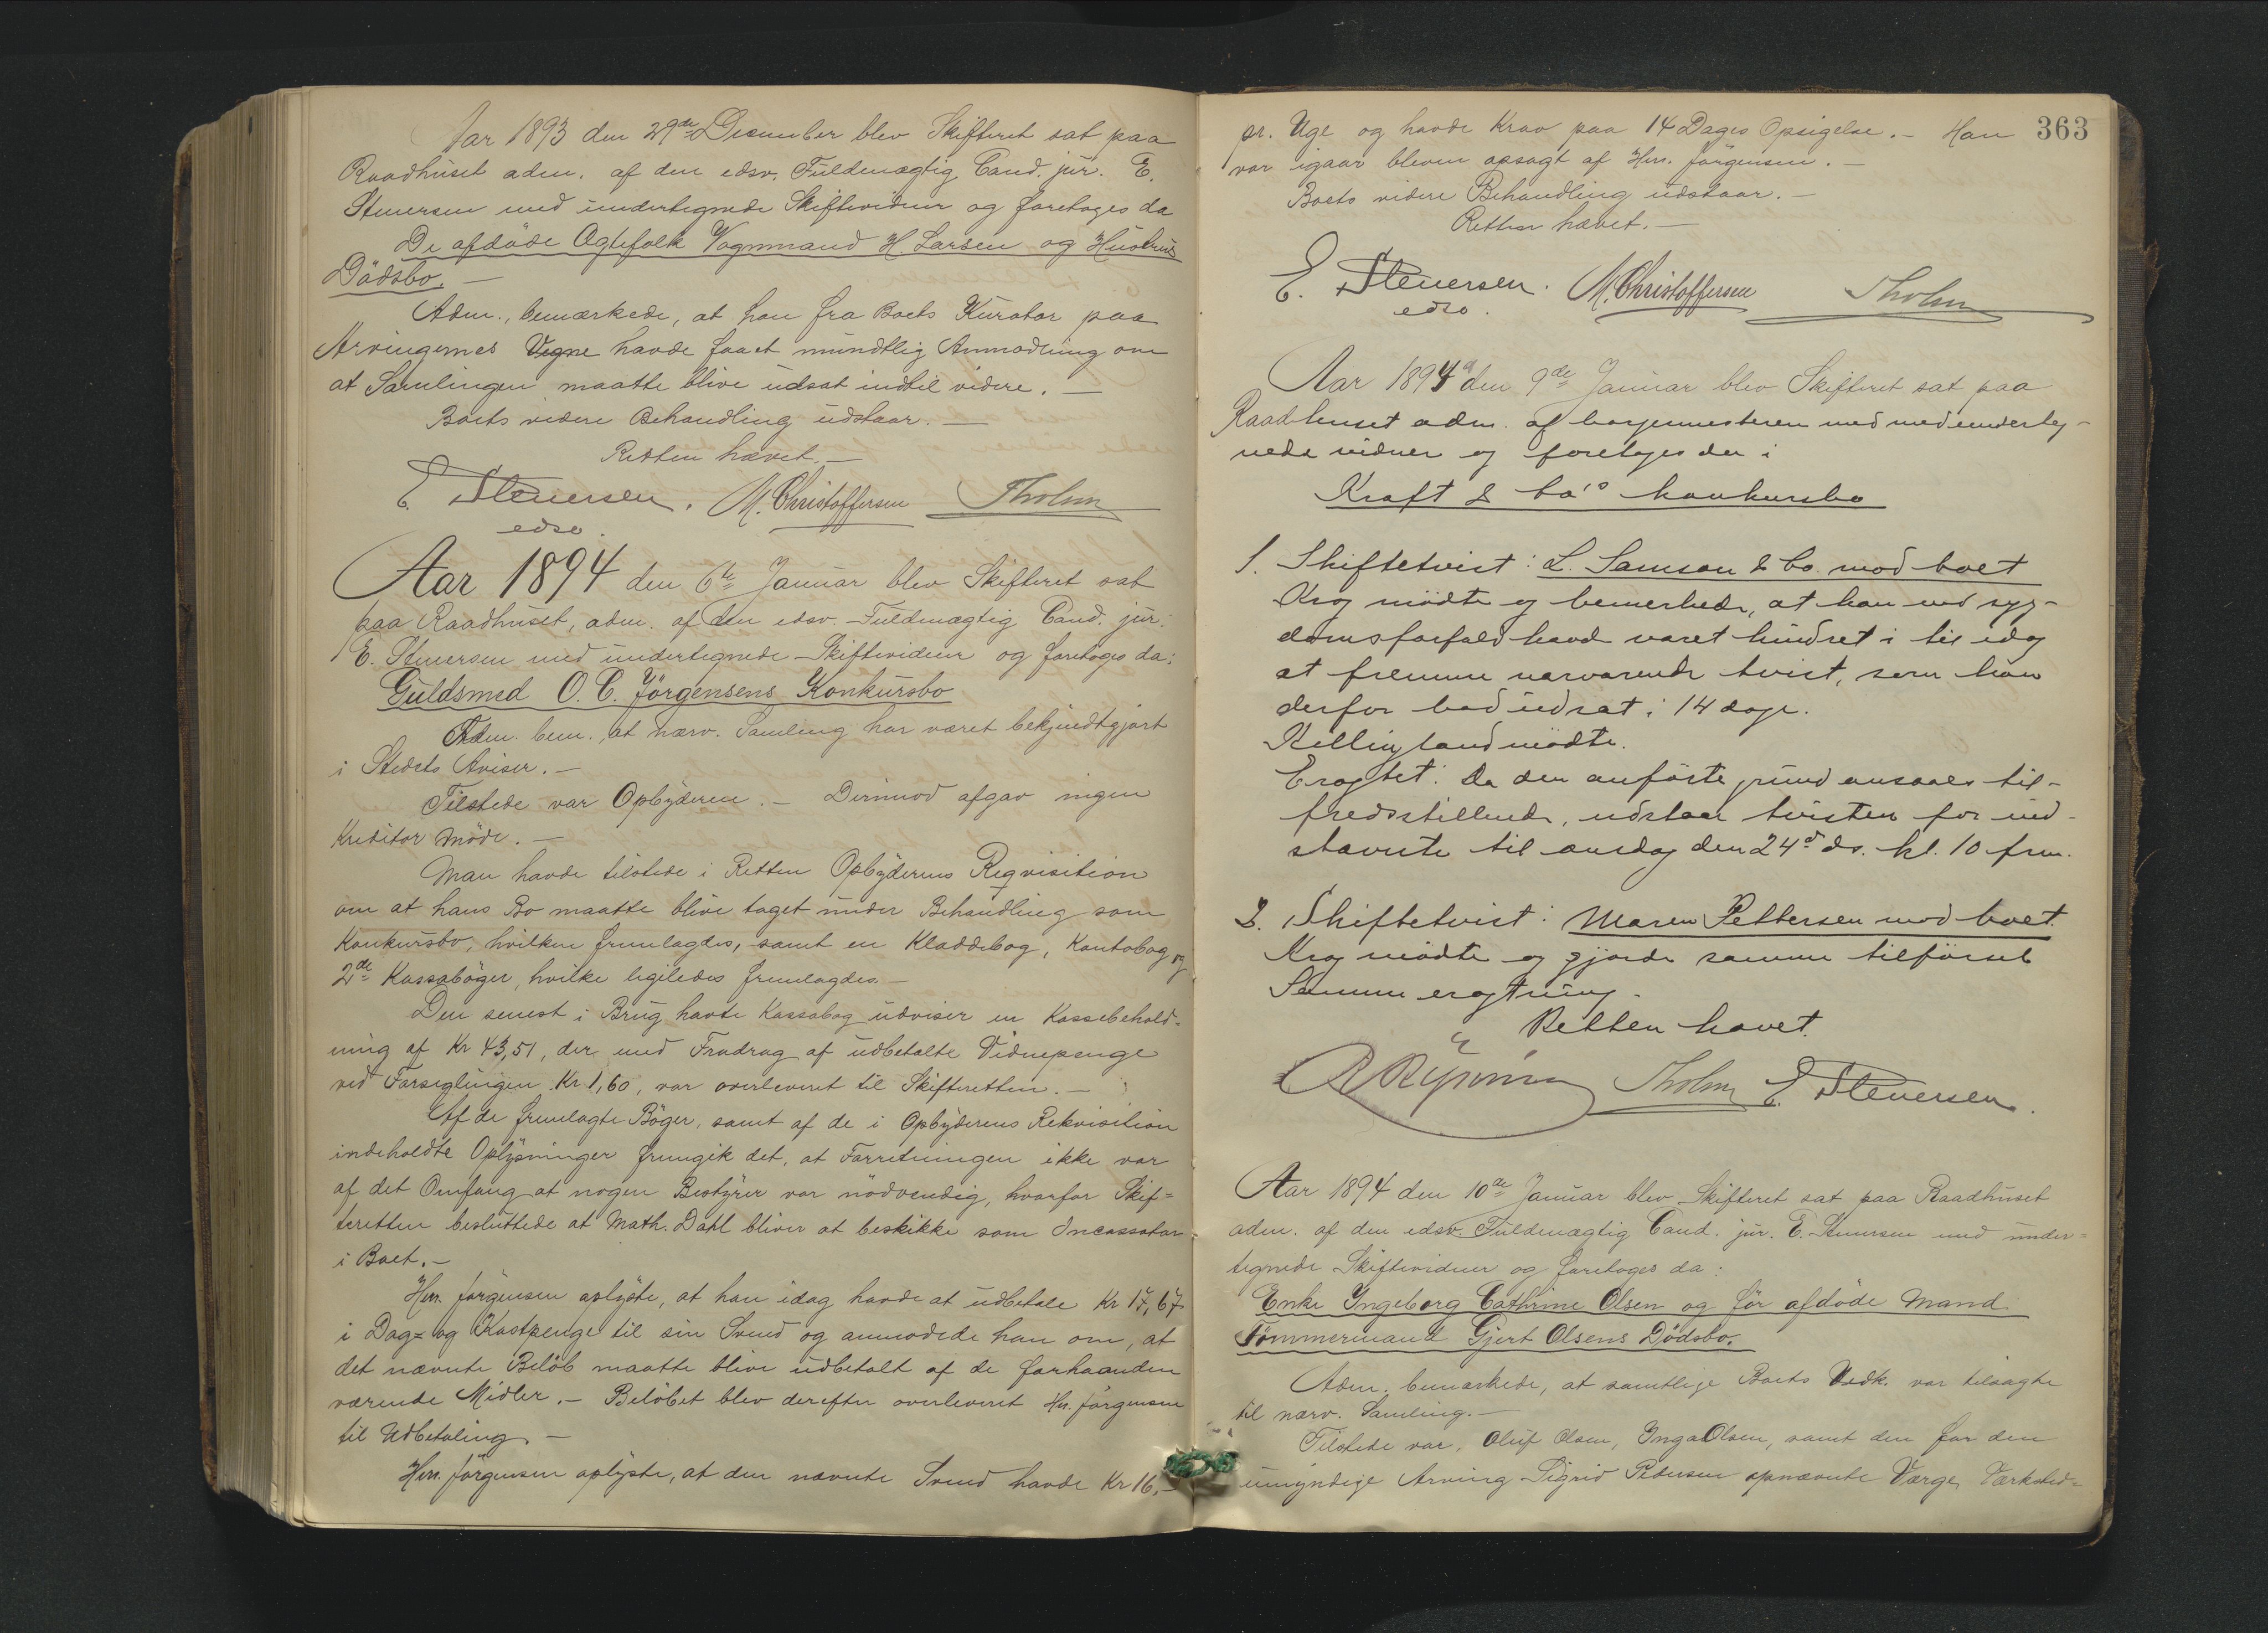 Aar 1893 den 29de December blev Skifteret sat paa
Raadhuset adm. af den edsv. Fuldmægtig Cand. jur. E.
Stenersen med undertegnede Skiftevidner og foretoges da
De afdøde Ægtefolk Vognmand H. Larsen og Hustrus
Dødsbo. —
Adm., bemærkede, at han fra Boets Kurator paa
Arvingernes Vegne havde faaet mundtlig Anmodning om
at Samlingen maatte blive udsat indtil videre. —
Boets videre Behandling udstaar. —
Retten hævet. —
E. Stenersen. M. Christoffersen Tholm
edsv.
Aar 1894 den 6te Januar blev Skifteret sat
paa Raadhuset, adm. af den edsv. Fuldmægtig Cand. jur.
E. Stenersen med undertegnede Skiftevidner og foretoges da:
Guldsmed O. C. Jörgensens Konkursbo
Adm. bem., at nærv. Samling har været bekjendtgjort
i Stedets Aviser. —
Tilstede var Opbyderen. — Derimod afgav ingen
Kreditor Møde. —
Man havde tilstede i Retten Opbyderens Reqvisition
om at hans Bo maatte blive taget under Behandling som
Konkursbo, hvilken fremlagdes, samt en Kladdebog, Kontobog og
2de Kassabøger, hvilke ligeledes fremlagdes. —
Den senest i Brug havte Kassabog udviser en Kassebehold-
ning af Kr 43,51, der med Fradrag af udbetalte Vidnepenge
ved Forseglingen Kr 1,60, var overleveret til Skifteretten. —
Af de fremlagte Bøger, samt af de i Opbyderens Rekvisition
indeholdte Oplysninger fremgik det, at Forretningen ikke var
af det Omfang at nogen Bestyrer var nødvendig, hvorfor Skif=
teretten besluttede at Math. Dahl bliver at beskikke som Incassator
i Boet. —
Herr. Jörgensen oplyste, at han idag havde at udbetale Kr 17,67
i Dag= og Kostpenge til sin Svend og anmodede han om, at
det nævnte Beløb maatte blive udbetalt af de forhaanden
værende Midler. — Beløbet blev derefter overleveret Hr. Jörgensen
til Udbetaling. —
Herr. Jörgensen oplyste, at den nævnte Svend havde Kr 16,—
363
pr. Uge og havde Krav paa 14 Dages Opsigelse. — Han
var igaar bleven opsagt af Herr. Jörgensen. —
Boets videre Behandling udstaar. —
Retten hævet. —
E. Stenersen. M. Christoffersen Tholm
edsv.
Aar 1894 den 9de Januar blev Skifteret sat paa
Raadhuset adm. af borgermesteren med med underteg-
nede vidner og foretoges da i
Kraft & Co's konkursbo
1. Skiftetvist: L. Samson & Co. mod boet
Krog mødte og bemerkede, at han ved syg-
domsforfald havde været hindret i til idag
at fremme nærværende tvist, som han
derfor bad udsat i 14 dage.
Kellingland mødte.
Eragtet: Da den anførte grund ansaaes til-
fredsstillende, udstaar tvisten for ved-
stævnte til onsdag den 24de ds. kl. 10 frm.
2. Skiftetvist: Maren Pettersen mod boet.
Krog mødte og gjorde samme tilførsel
Samme eragtning.
Retten hævet.
Tholm E. Stenersen.
Aar 1894 den 10de Januar blev Skifteret sat paa Raadhuset
adm. af den edsv. Fuldmægtig Cand. jur. E. Stenersen med under=
tegnede Skiftevidner og foretoges da:
Enke Ingeborg Cathrine Olsen og før afdøde Mand
Tømmermand Gjert Olsens Dødsbo.
Adm. bemærkede, at samtlige Boets Vedk. var tilsagte
til nærv. Samling. —
Tilstede var, Oluf Olsen, Inga Olsen, samt den for den
umyndige Arving Sigrid Pedersen opnævnte Værge, Værksted=